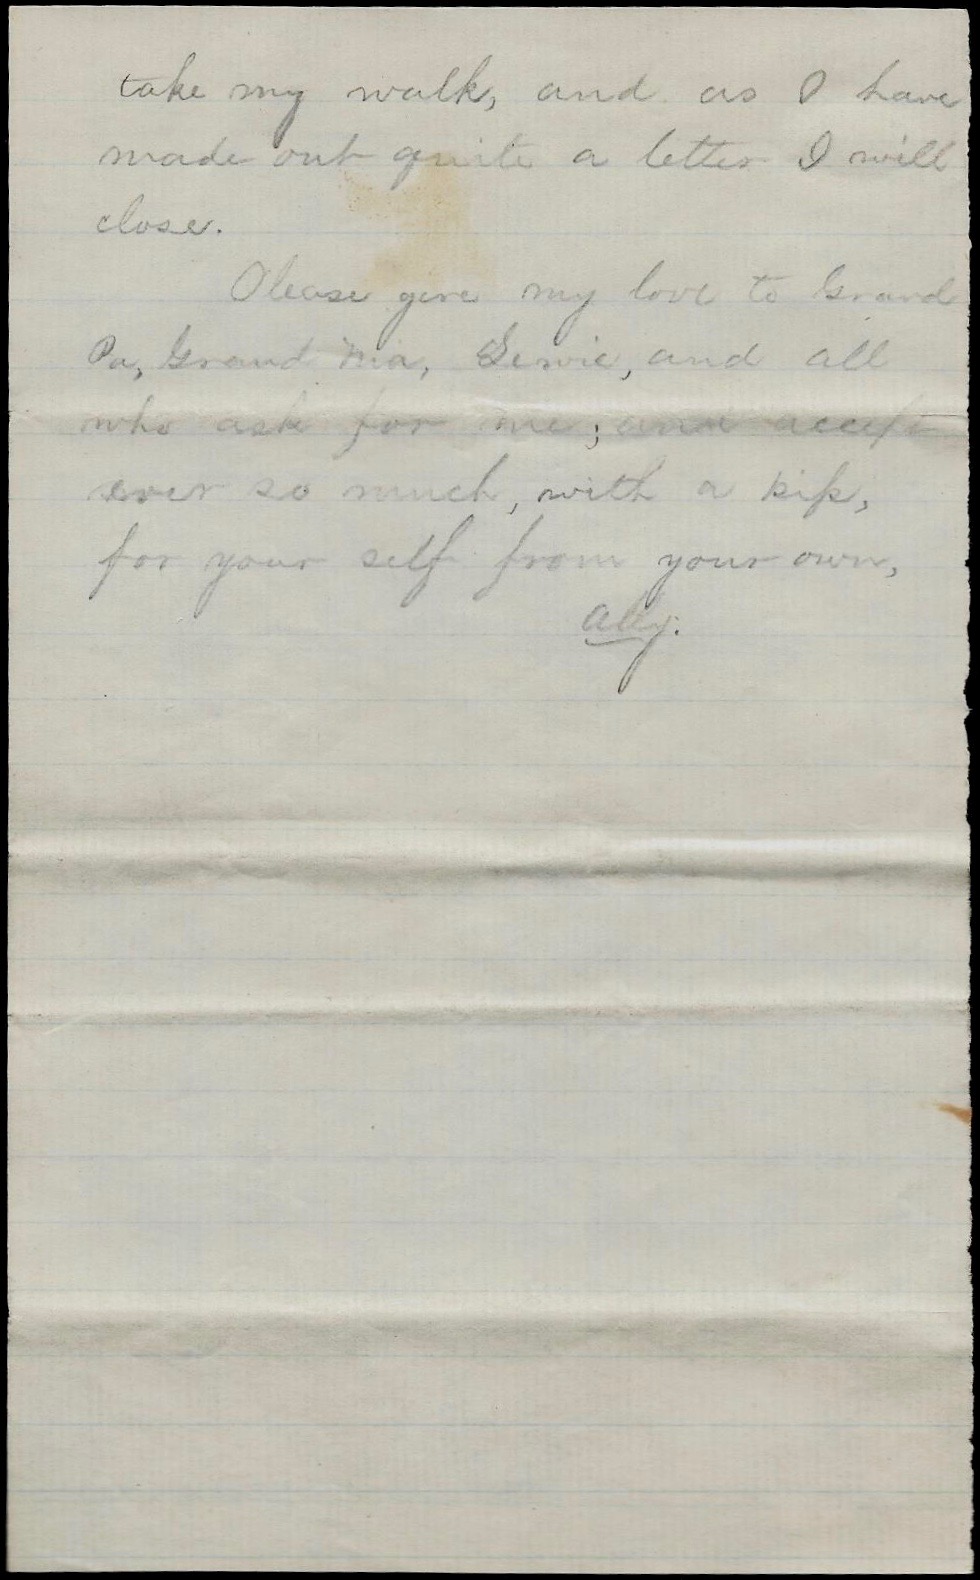 take my walk, and as I have
made out quite a letter I will
close.
Please give my love to Grand
Pa, Grand Ma, and all
who ask for me; and accept
ever so much, with a kiss,
for your self from your own,
Ally.